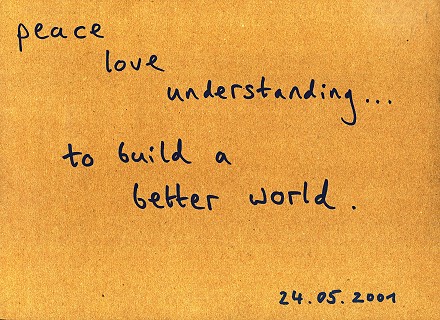 peace
love
understanding...
to build a
better world.
24.05.2001